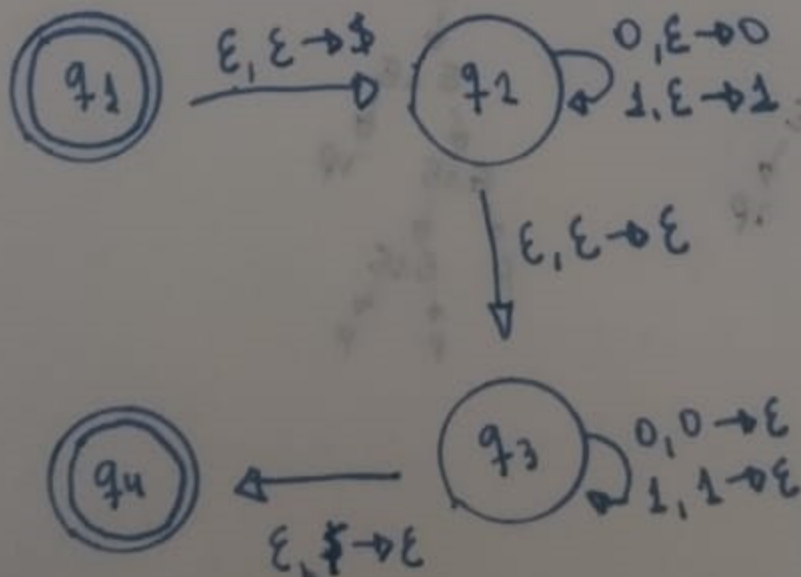 q1
ε, ε→$
q2
0, ε→0
1, ε→1
ε, ε→ε
q3
0, 0→ε
1, 1→ε
q4
ε, $→ε